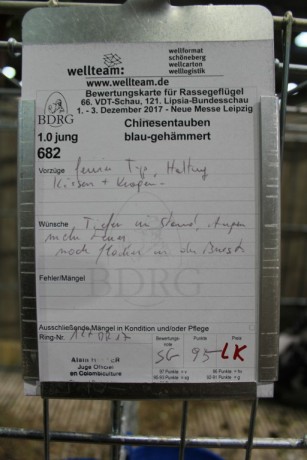 wellteam:
wellformat
schöneberg
wellcarton
welllogistik
www.wellteam.de
Bewertungskarte für Rassegeflügel
66. VDT-Schau, 121. Lipsia-Bundesschau
1. - 3. Dezember 2017 - Neue Messe Leipzig
BDRG
Chinesentauben
1.0 jung
blau-gehämmert
682
Vorzüge
Typ, Haltung
Kissen + Kragen
Wünsche
Tiefer im Stand, Augen
mehr
noch in der Brust
BDRG
Fehler/Mängel
Ausschließende Mängel in Kondition und/oder Pflege
Ring-Nr.
Alain
Juge Officiel
en Colombiculture
Bewertungs-
note
Punkte
Preis
SG 95 LK
97 Punkte = v
96 Punkte = hv